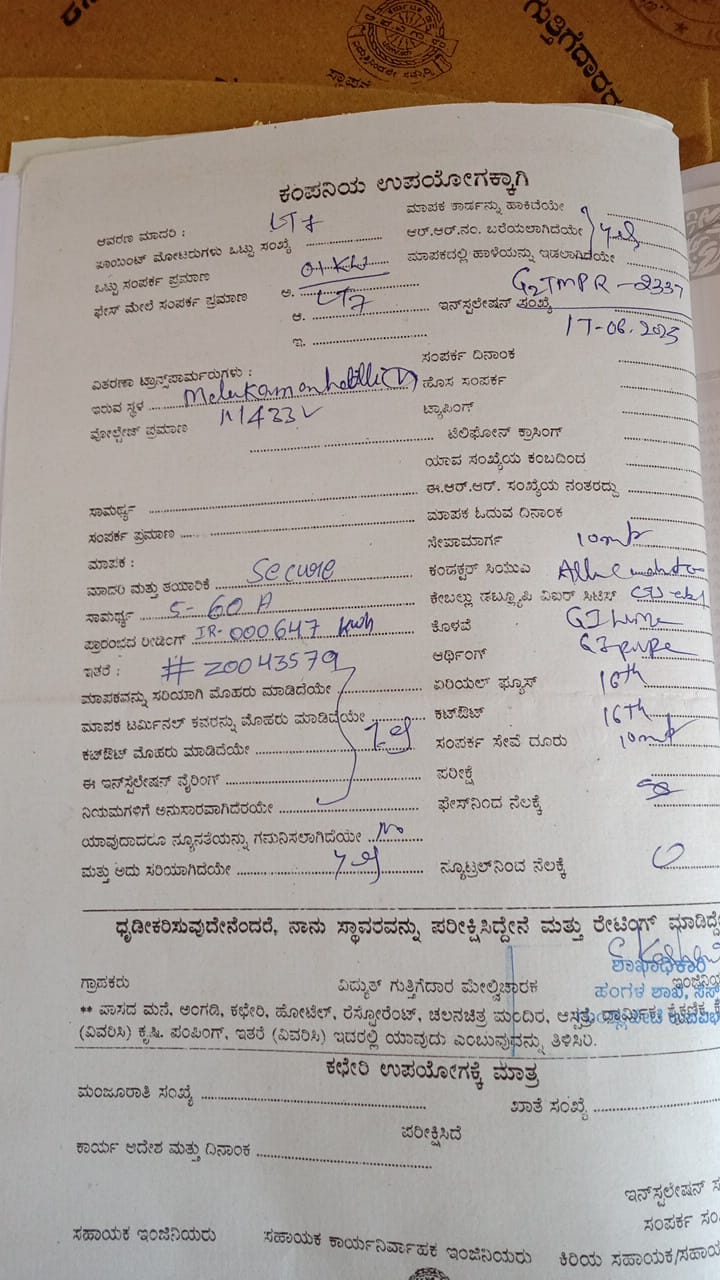 ಗುತ್ತಿಗೆದಾರರ
ಸ್ಥಾಪನೆ
ಕಂಪನಿಯ ಉಪಯೋಗಕ್ಕಾಗಿ
ಆವರಣ ಮಾದರಿ : LT7
ಮಾಪಕ ಕಾರ್ಡನ್ನು ಹಾಕಿದೆಯೇ
ಪಾಯಿಂಟ್ ಮೋಟರುಗಳು ಒಟ್ಟು ಸಂಖ್ಯೆ
ಆರ್.ಆರ್.ನಂ. ಬರೆಯಲಾಗಿದೆಯೇ yes
ಒಟ್ಟು ಸಂಪರ್ಕ ಪ್ರಮಾಣ 01 KW
ಮಾಪಕದಲ್ಲಿ ಹಾಳೆಯನ್ನು ಇಡಲಾಗಿದೆಯೇ
ಫೇಸ್ ಮೇಲೆ ಸಂಪರ್ಕ ಪ್ರಮಾಣ ಅ. LT7
ಆ.
ಇನ್‌ಸ್ಟಲೇಷನ್ ಸಂಖ್ಯೆ G2TMPR-2337
ಇ.
17-06-2025
ವಿತರಣಾ ಟ್ರಾನ್ಸ್‌ಪಾರ್ಮರುಗಳು :
ಸಂಪರ್ಕ ದಿನಾಂಕ
ಇರುವ ಸ್ಥಳ
ಹೊಸ ಸಂಪರ್ಕ
ವೋಲ್ಟೇಜ್ ಪ್ರಮಾಣ 11/433V
ಟ್ಯಾಪಿಂಗ್
ಟೆಲಿಫೋನ್ ಕ್ರಾಸಿಂಗ್
ಯಾವ ಸಂಖ್ಯೆಯ ಕಂಬದಿಂದ
ಸಾಮರ್ಥ್ಯ
ಈ.ಆರ್.ಆರ್. ಸಂಖ್ಯೆಯ ನಂತರದ್ದು
ಸಂಪರ್ಕ ಪ್ರಮಾಣ
ಮಾಪಕ ಓದುವ ದಿನಾಂಕ
ಮಾಪಕ :
ಸೇವಾಮಾರ್ಗ 10mtr
ಮಾದರಿ ಮತ್ತು ತಯಾರಿಕೆ Secure
ಕಂಡಕ್ಟರ್ ಸಿಯುಎ
ಸಾಮರ್ಥ್ಯ 5-60 A
ಕೇಬಲ್ಲು ಡಬ್ಲ್ಯೂಪಿ ವಿಐಆರ್ ಸಿಟಿಎಸ್
ಪ್ರಾರಂಭದ ರೀಡಿಂಗ್ IR-000647 kwh
ಕೊಳವೆ
ಇತರೆ : # Z0043579
ಆರ್ಥಿಂಗ್ GI pipe
ಮಾಪಕವನ್ನು ಸರಿಯಾಗಿ ಮೊಹರು ಮಾಡಿದೆಯೇ
ಏರಿಯಲ್ ಫ್ಯೂಸ್ 16th
ಮಾಪಕ ಟರ್ಮಿನಲ್ ಕವರನ್ನು ಮೊಹರು ಮಾಡಿದೆಯೇ
ಕಟ್‌ಔಟ್ 16th
ಕಟ್‌ಔಟ್ ಮೊಹರು ಮಾಡಿದೆಯೇ yes
ಸಂಪರ್ಕ ಸೇವೆ ದೂರು 10mtr
ಈ ಇನ್‌ಸ್ಟಲೇಷನ್ ವೈರಿಂಗ್
ಪರೀಕ್ಷೆ
ನಿಯಮಗಳಿಗೆ ಅನುಸಾರವಾಗಿದೆರಯೇ
ಫೇಸ್‌ನಿಂದ ನೆಲಕ್ಕೆ
ಯಾವುದಾದರೂ ನ್ಯೂನತೆಯನ್ನು ಗಮನಿಸಲಾಗಿದೆಯೇ No
ಮತ್ತು ಅದು ಸರಿಯಾಗಿದೆಯೇ yes
ನ್ಯೂಟ್ರಲ್‌ನಿಂದ ನೆಲಕ್ಕೆ 0
ಧೃಡೀಕರಿಸುವುದೇನೆಂದರೆ, ನಾನು ಸ್ಥಾವರವನ್ನು ಪರೀಕ್ಷಿಸಿದ್ದೇನೆ ಮತ್ತು ರೇಟಿಂಗ್ ಮಾಡಿದ್ದೇ
ಶಾಖಾಧಿಕಾರಿ
ಗ್ರಾಹಕರು ವಿದ್ಯುತ್ ಗುತ್ತಿಗೆದಾರ ಮೇಲ್ವಿಚಾರಕ
ಹಂಗಳ ಶಾಖೆ, ಸೆಸ್
** ವಾಸದ ಮನೆ, ಅಂಗಡಿ, ಕಛೇರಿ, ಹೋಟೆಲ್, ರೆಸ್ಟೋರೆಂಟ್, ಚಲನಚಿತ್ರ ಮಂದಿರ, ಆಸ್ಪತ್ರೆ, ಧಾರ್ಮಿಕ,
(ವಿವರಿಸಿ) ಕೃಷಿ. ಪಂಪಿಂಗ್, ಇತರೆ (ವಿವರಿಸಿ) ಇದರಲ್ಲಿ ಯಾವುದು ಎಂಬುನುವುದನ್ನು ತಿಳಿಸಿರಿ.
ಕಛೇರಿ ಉಪಯೋಗಕ್ಕೆ ಮಾತ್ರ
ಮಂಜೂರಾತಿ ಸಂಖ್ಯೆ
ಖಾತೆ ಸಂಖ್ಯೆ
ಪರೀಕ್ಷಿಸಿದೆ
ಕಾರ್ಯ ಆದೇಶ ಮತ್ತು ದಿನಾಂಕ
ಇನ್‌ಸ್ಟಲೇಷನ್
ಸಂಪರ್ಕ
ಸಹಾಯಕ ಇಂಜಿನಿಯರು ಸಹಾಯಕ ಕಾರ್ಯನಿರ್ವಾಹಕ ಇಂಜಿನಿಯರು ಕಿರಿಯ ಸಹಾಯಕ/ಸಹಾಯ